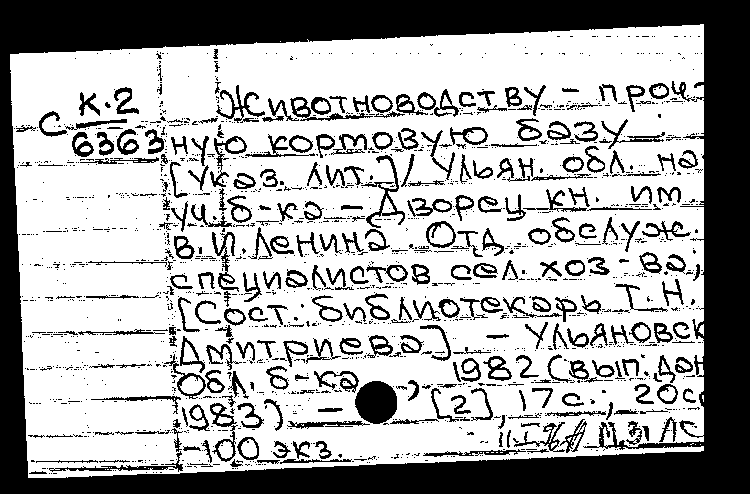 С К.2 Животноводству – проч-
6363 ную кормовую базу :
[Указ. лит.] / Ульян. обл. на
уч. б-ка – Дворец кн. им.
В.И.Ленина. Отд. обслуж.
специалистов сел. хоз-ва;
[Сост.: библиотекарь Т.Н.
Дмитриева]. – Ульяновск
Обл. б-ка, 1982 (вып. дан
1983) – [2], 17 с.; 20 с
–100 экз.